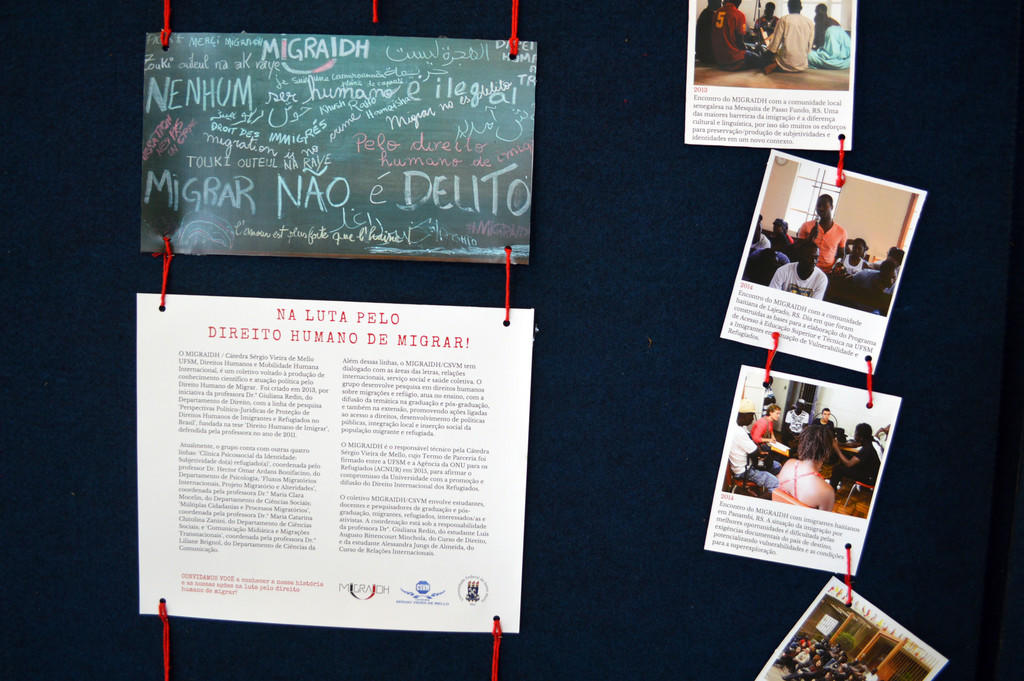 MERCI MIGRAIDH
MIGRAIDH
NENHUM
ser humano é ilegal
Migrar no es delito
DROIT DES IMMIGRÉS
migration is no
Pelo direito
humano de migr
TOUKI OUTEUL NA RAYE
MIGRAR NÃO é DELITO
l'amour est plus forte que l'haine
NA LUTA PELO
DIREITO HUMANO DE MIGRAR!
O MIGRAIDH / Cátedra Sérgio Vieira de Mello
UFSM, Direitos Humanos e Mobilidade Humana
Internacional, é um coletivo voltado à produção de
conhecimento científico e atuação política pelo
Direito Humano de Migrar. Foi criado em 2013, por
iniciativa da professora Dr.ª Giuliana Redin, do
Departamento de Direito, com a linha de pesquisa
'Perspectivas Político-Jurídicas de Proteção de
Direitos Humanos de Imigrantes e Refugiados no
Brasil', fundada na tese 'Direito Humano de Imigrar',
defendida pela professora no ano de 2011.
Atualmente, o grupo conta com outras quatro
linhas: 'Clínica Psicossocial da Identidade:
Subjetividade do(a) refugiado(a)', coordenada pelo
professor Dr. Hector Omar Ardans Bonifacino, do
Departamento de Psicologia; 'Fluxos Migratórios
Internacionais, Projeto Migratório e Alteridades',
coordenada pela professora Dr.ª Maria Clara
Mocelin, do Departamento de Ciências Sociais;
'Múltiplas Cidadanias e Processos Migratórios',
coordenada pela professora Dr.ª Maria Catarina
Chitolina Zanini, do Departamento de Ciências
Sociais; e 'Comunicação Midiática e Migrações
Transnacionais', coordenada pela professora Dr.ª
Liliane Brignol, do Departamento de Ciências da
Comunicação.
Além dessas linhas, o MIGRAIDH/CSVM tem
dialogado com as áreas das letras, relações
internacionais, serviço social e saúde coletiva. O
grupo desenvolve pesquisa em direitos humanos
sobre migrações e refúgio, atua no ensino, com a
difusão da temática na graduação e pós-graduação,
e também na extensão, promovendo ações ligadas
ao acesso a direitos, desenvolvimento de políticas
públicas, integração local e inserção social da
população migrante e refugiada.
O MIGRAIDH é o responsável técnico pela Cátedra
Sérgio Vieira de Mello, cujo Termo de Parceria foi
firmado entre a UFSM e a Agência da ONU para os
Refugiados (ACNUR) em 2015, para afirmar o
compromisso da Universidade com a promoção e
difusão do Direito Internacional dos Refugiados.
O coletivo MIGRAIDH/CSVM envolve estudantes,
docentes e pesquisadores de graduação e pós-
graduação, migrantes, refugiados, interessados/as e
ativistas. A coordenação está sob a responsabilidade
da professora Drª. Giuliana Redin, do estudante Luís
Augusto Bittencourt Minchola, do Curso de Direito,
e da estudante Alessandra Jungs de Almeida, do
Curso de Relações Internacionais.
CONVIDAMOS VOCÊ a conhecer a nossa história
e as nossas ações na luta pelo direito
humano de migrar!
MIGRAIDH
SÉRGIO VIEIRA DE MELLO
5
2013
Encontro do MIGRAIDH com a comunidade local
senegalesa na Mesquita de Passo Fundo, RS. Uma
das maiores barreiras da imigração é a diferença
cultural e linguística, por isso são muitos os esforços
para preservação/produção de subjetividades e
identidades em um novo contexto.
2014
Encontro do MIGRAIDH com a comunidade
haitiana de Lajeado, RS. Dia em que foram
construídas as bases para a elaboração do Programa
de Acesso à Educação Superior e Técnica na UFSM
a Imigrantes em Situação de Vulnerabilidade e
Refugiados.
2014
Encontro do MIGRAIDH com imigrantes haitianos
em Panambi, RS. A situação da imigração por
melhores oportunidades é dificultada pelas
exigências documentais do país de destino,
potencializando vulnerabilidades e as condições
para a superexploração.